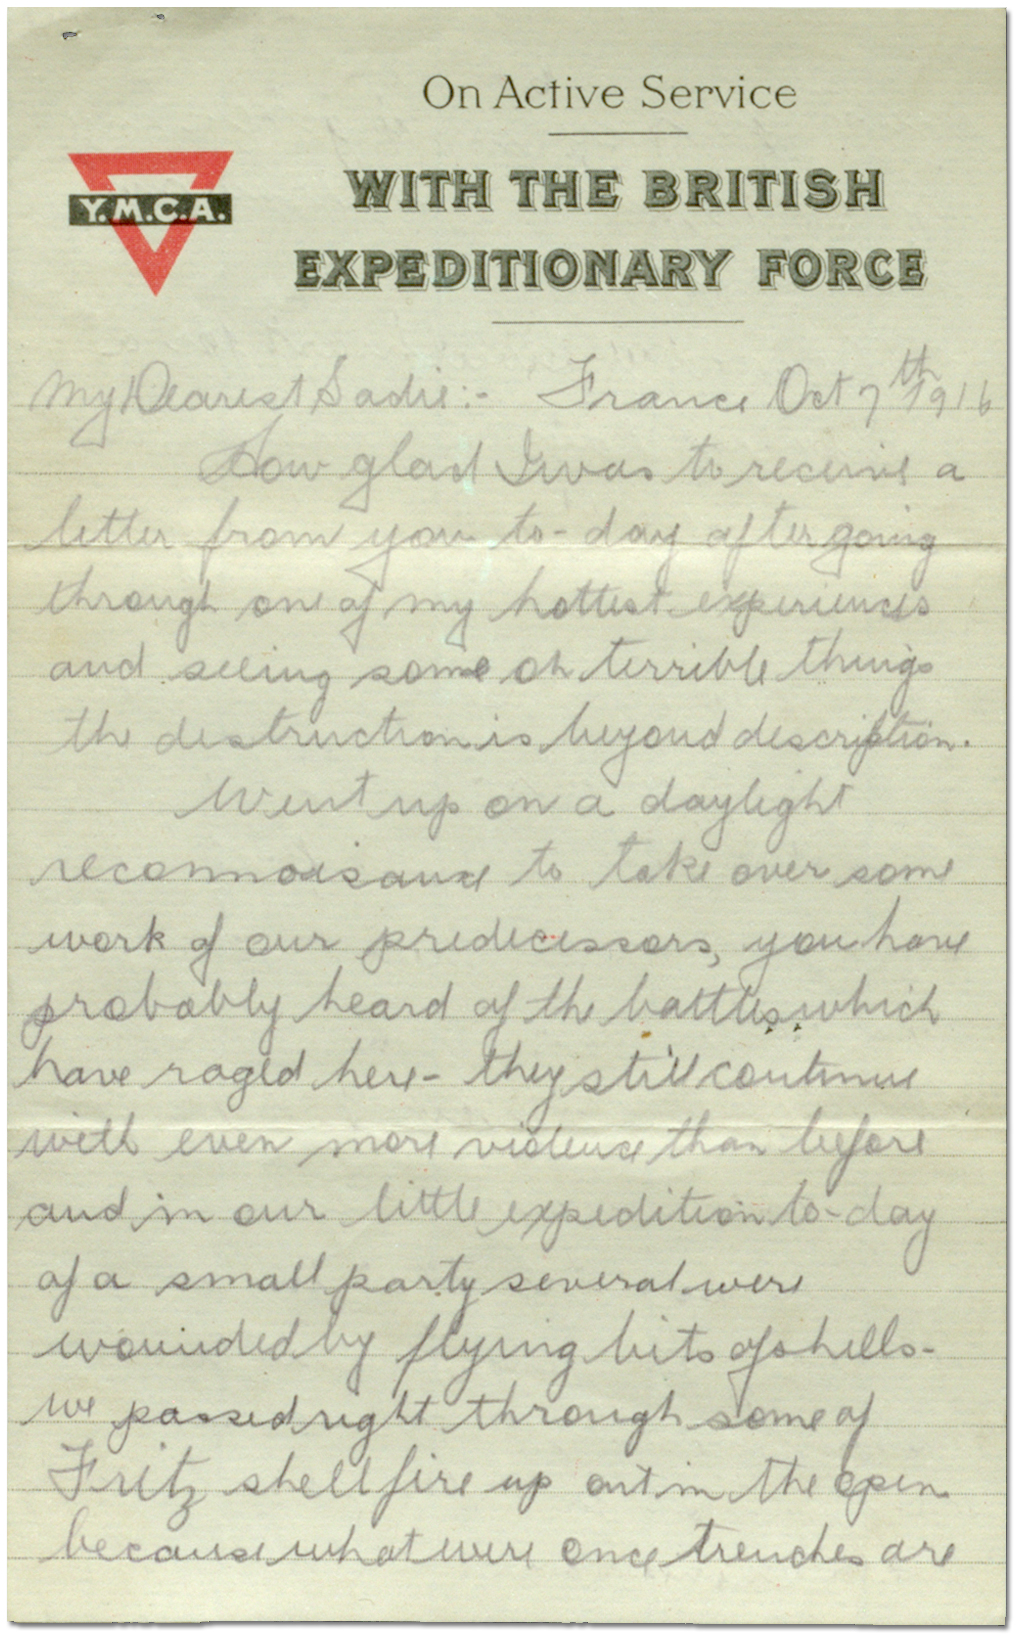 On Active Service
WITH THE BRITISH
EXPEDITIONARY FORCE
Y.M.C.A.
My Dearest Sadie:- France Oct 7th 1916
How glad I was to receive a
letter from you to-day after going
through one of my hottest experiences
and seeing some oh terrible things
the destruction is beyond description.
Went up on a daylight
reconnoisance to take over some
work of our predecessors, you have
probably heard of the battles which
have raged here - they still continue
with even more violence than before
and in our little expedition to-day
of a small party several were
wounded by flying bits of shells-
we passed right through some of
Fritz shell fire up out in the open
because what were once trenches are